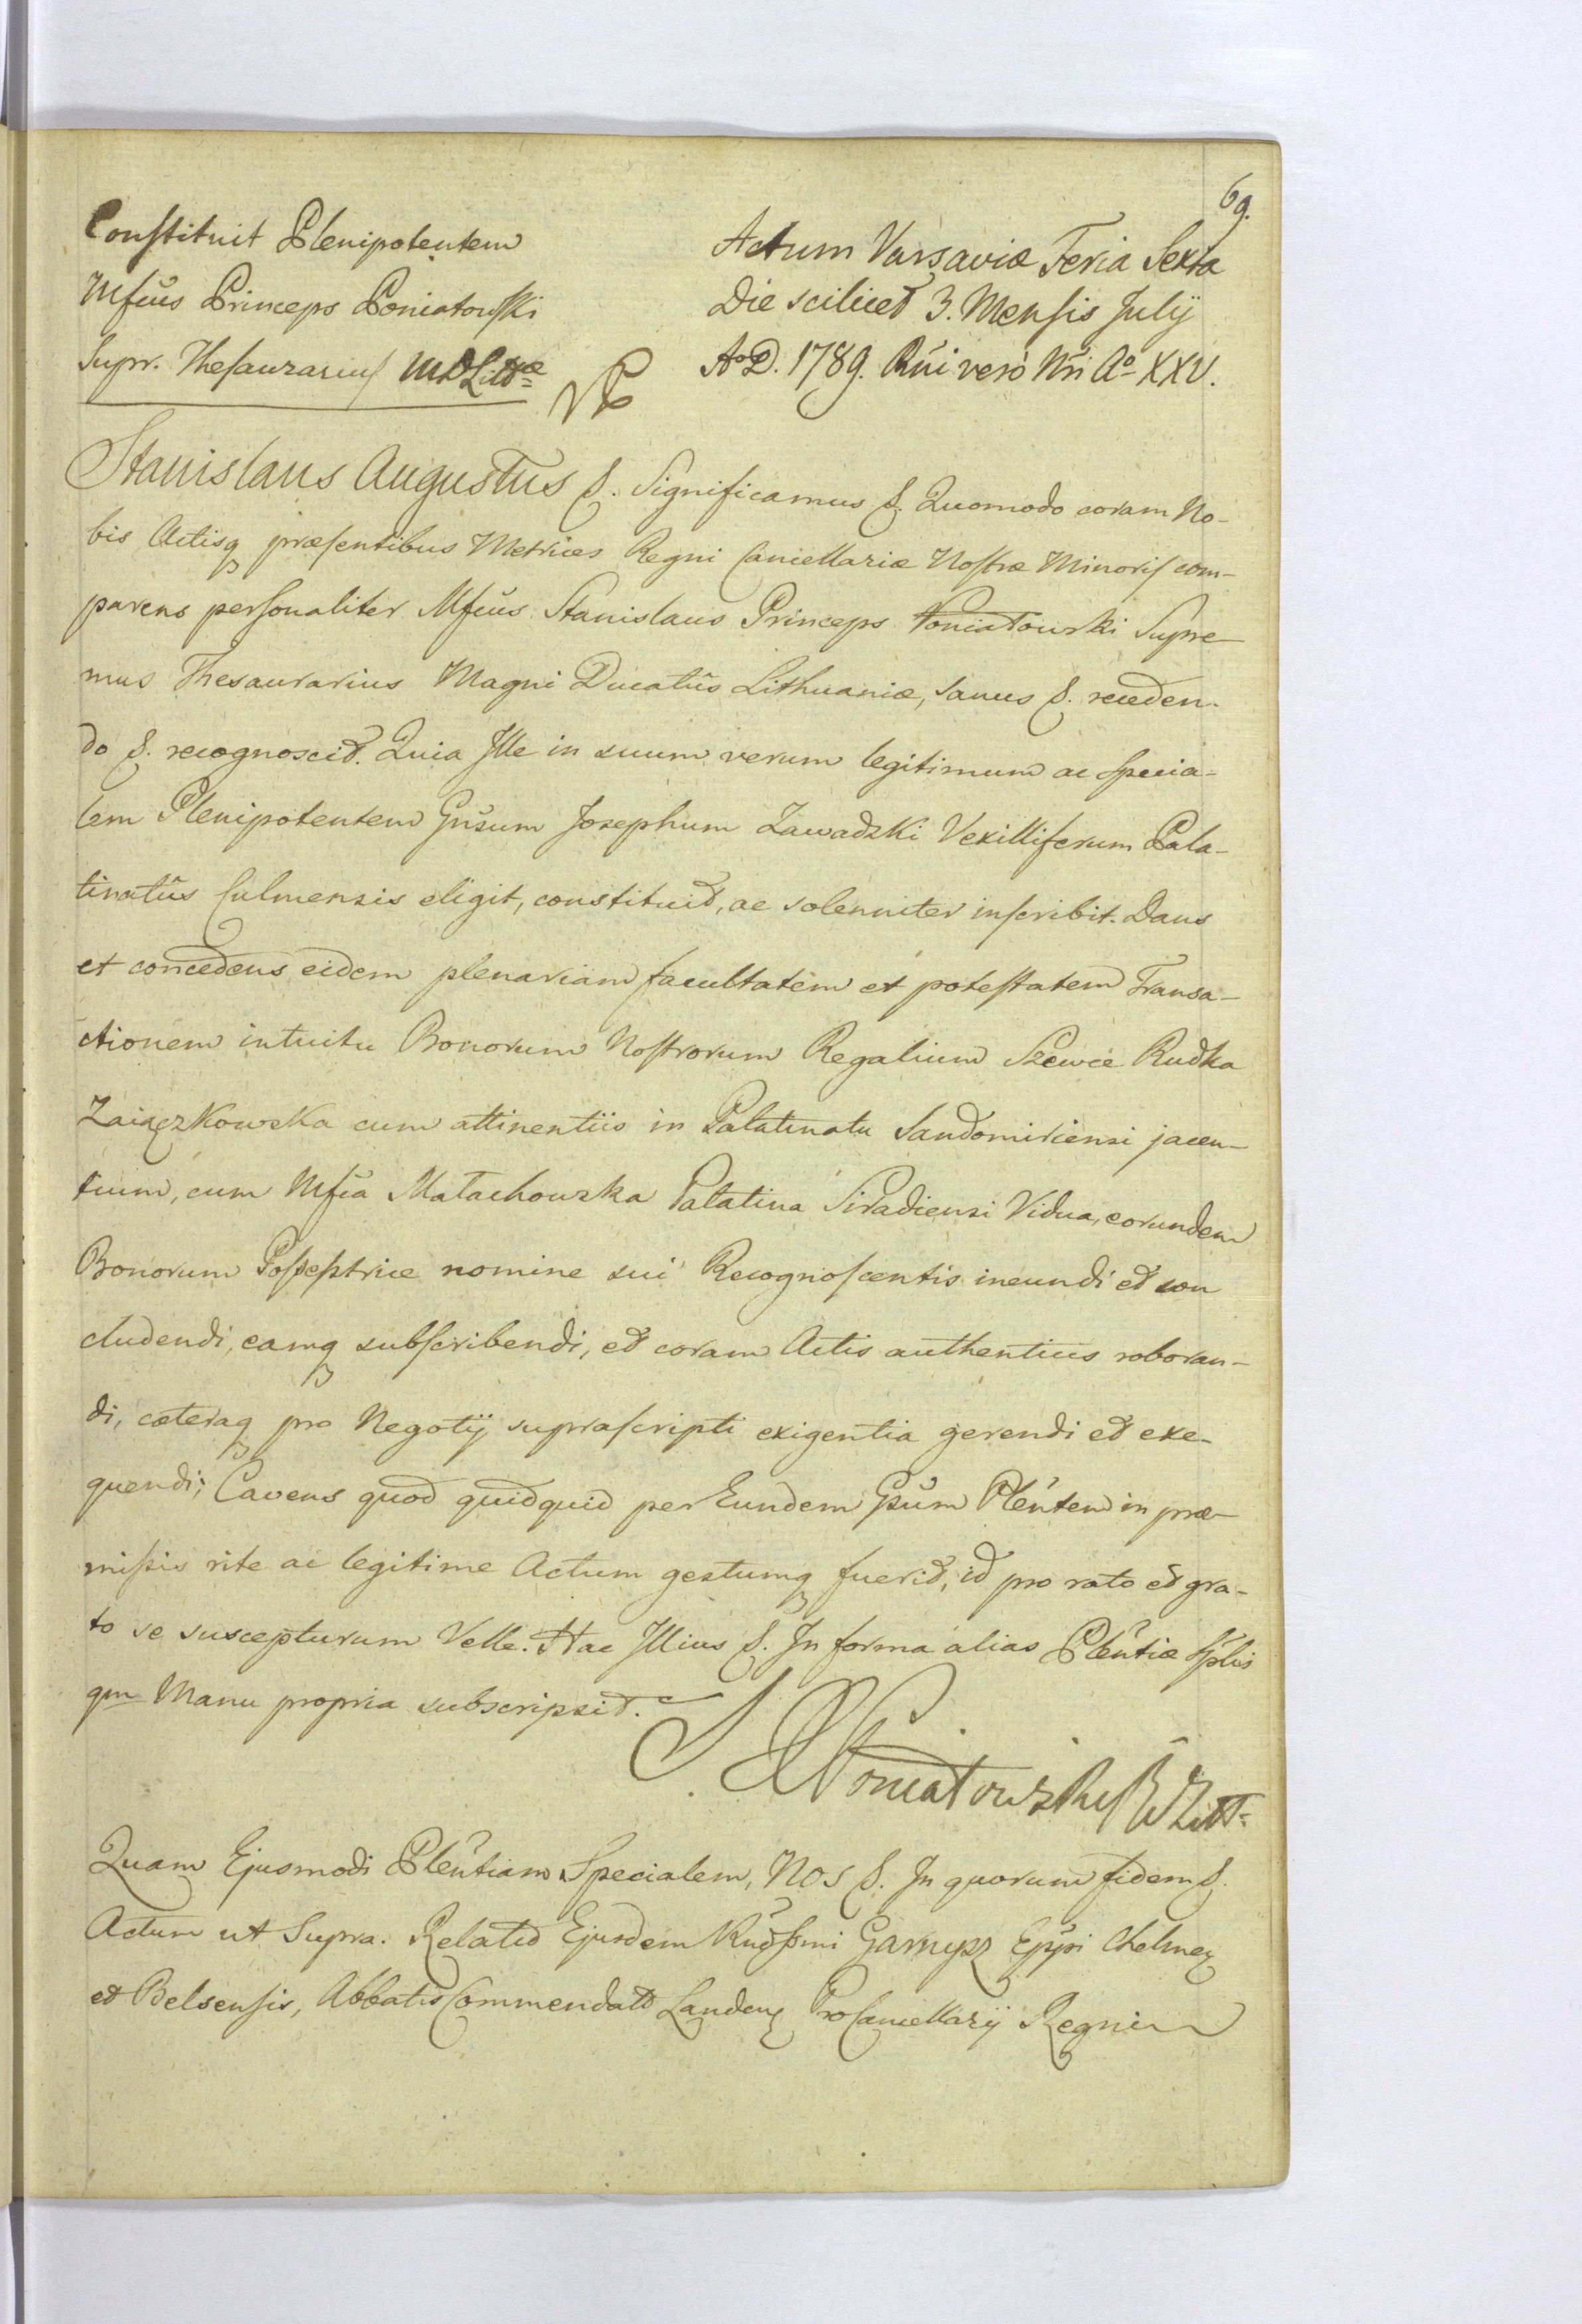 69.
Constituit Plenipotentem
Mfcus Princeps Poniatowski
Supr. Thesaurarius MDLittæ
Actum Varsaviæ Feria Sexta
Die scilicet 3. Mensis Julÿ
AoD. 1789. Rñi verò Nri Ao XXV.
Stanislaus Augustus &. Significamus &. Quomodo coram No-
bis Actisq præsentibus Metrices Regni Cancellariæ Nostræ Minoris com-
parens personaliter Mfcus Stanislaus Princeps Poniatowski Supre
mus Thesaurarius Magni Ducatûs Lithuaniæ, sanus &. receden-
do &. recognoscit. Quia Ille in suum verum legitimum ac specia-
lem Plenipotentem Gñsum Josephum Zawadzki Vexilliferum Pala-
tinatûs Culmensis eligit, constituit, ac solenniter inscribit. Dans
et concedens eidem plenariam facultatem et potestatem Transa-
ctionem intuitu Bonorum Nostrorum Regalium Szewce Rudka
Zaiączkowska cum attinentiis in Palatinatu Sandomiriensi jacen-
tium, cum Mfca Małachowska Palatina Siradiensi Vidua, eorundem
Bonorum Possestrice nomine sui Recognoscentis ineundi et con
cludendi, eamq subscribendi, et coram Actis authenticis roboran-
di, cæteraq pro Negotÿ suprascripti exigentia gerendi et exe-
quendi; Cavens quod quidquid per Eundem Gsum Plentem in præ-
missis rite ac legitime Actum gestumq fuerit, id pro rato et gra-
to se suscepturum Velle. Hac Illius &. In forma alias Plentiæ Splis
qm Manu propria subscripsit.
S X Poniatowski Littt.
Quam Ejusmodi Plentiam Specialem, Nos &. In quorum fidem &.
Actum ut Supra. Relatio Ejusdem Rndssmi Garnysz Eppi Chelmen
et Belsensis, Abbatis Commendatt Landen ProCancellarÿ Regni